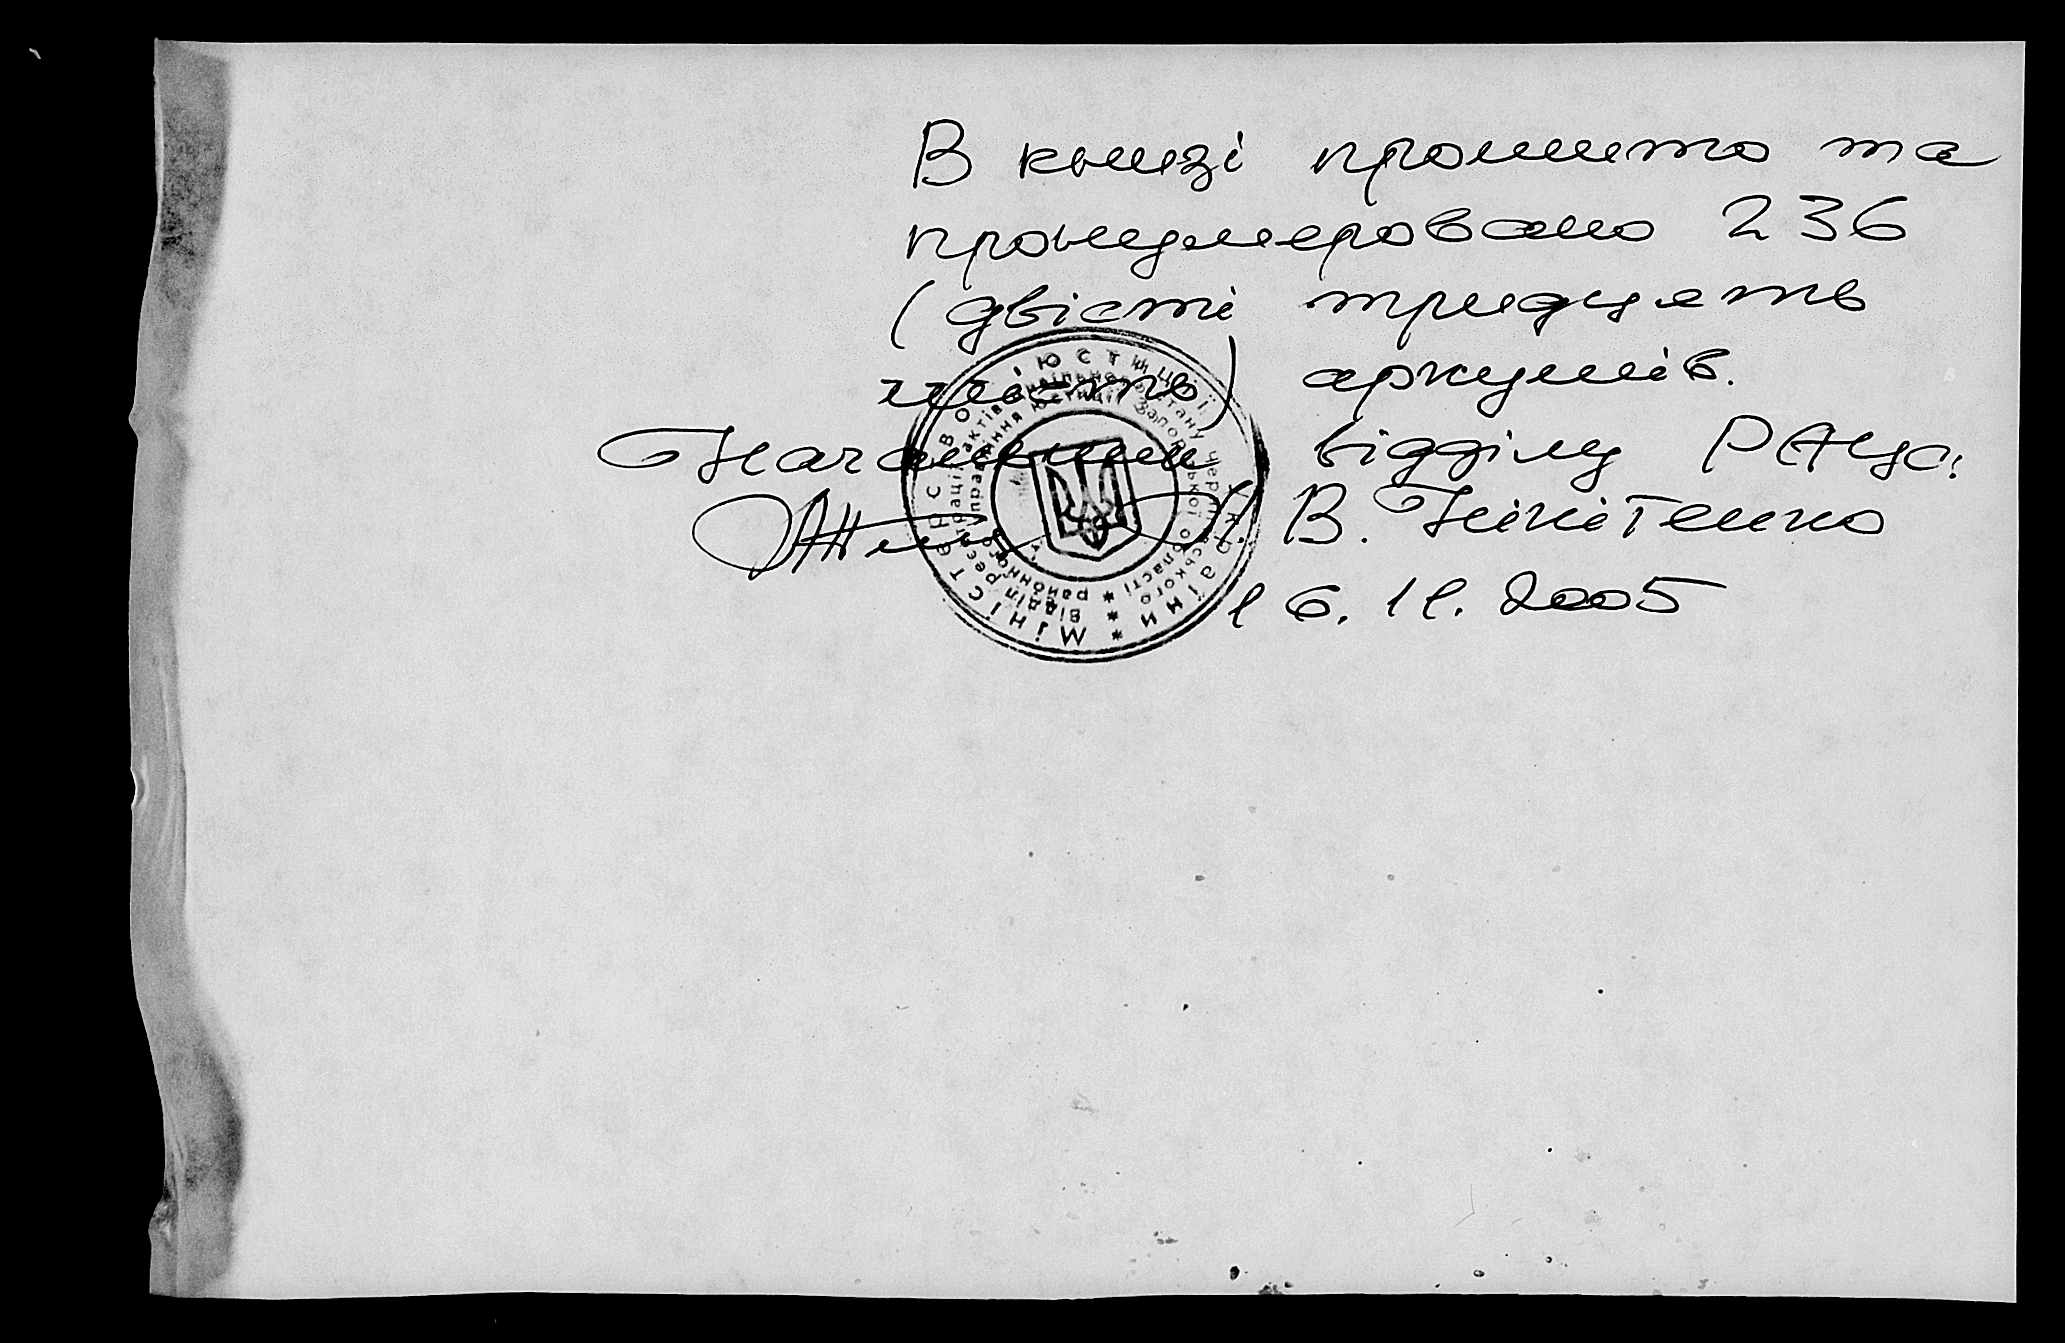 В книзі прошито та
пронумеровано 236
(двісті тридцять
шість) аркушів.
Начальник відділу РАЦС:
Л. В. Нікітенко
16.11.2005
МІНІСТЕРСТВО ЮСТИЦІЇ УКРАЇНИ
Відділ реєстрації актів цивільного стану Чернігівського
районного управління юстиції Запорізької області